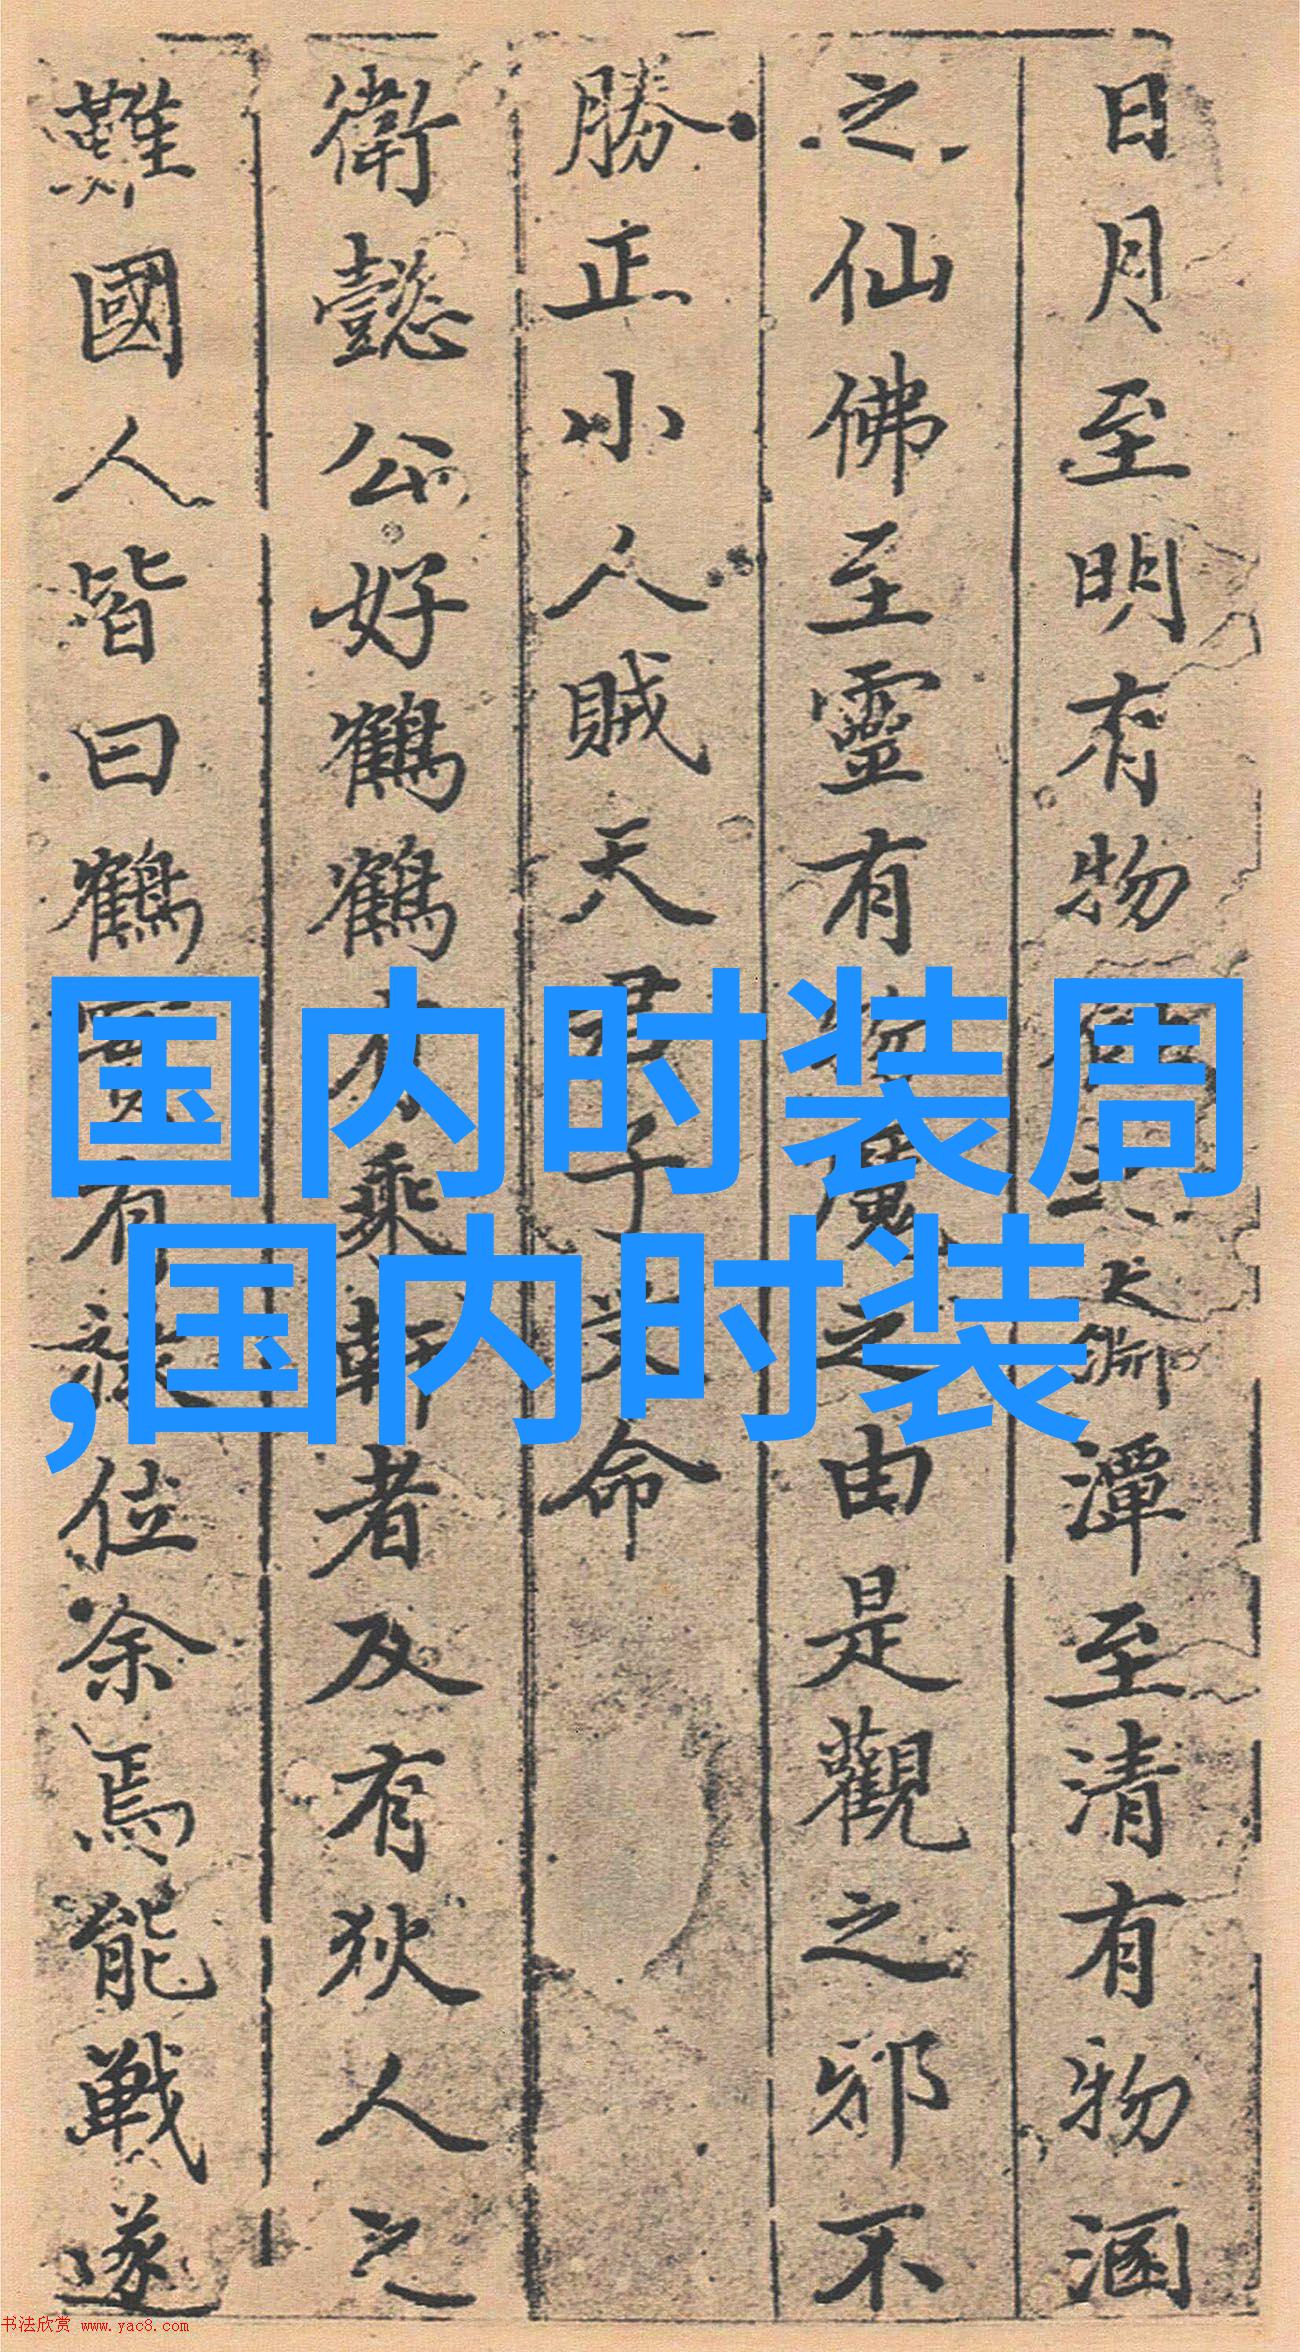 日月至明有物
潭至清有物涵
之仙佛至靈有
魔之由是觀之邪不
勝正小人賊天君子
命
衛懿公好鶴鶴
乘軒者及有狄人之
難國人皆曰鶴
有祿位余焉能戰遂
国内时装周
,国内时装
书法欣赏 www.yac8.com